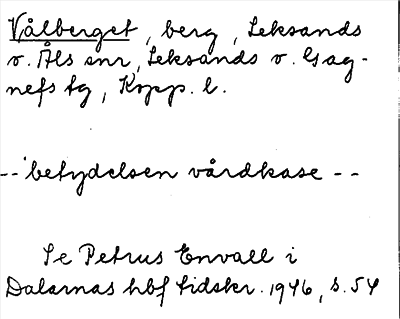 Vålberget, berg, Leksands
o. Åls snr, Leksands o. Gag-
nefs tg, Kopp. l.
-- betydelsen vårdkase --
Se Petrus Envall i
Dalarnas hbf tidskr. 1946, s. 54